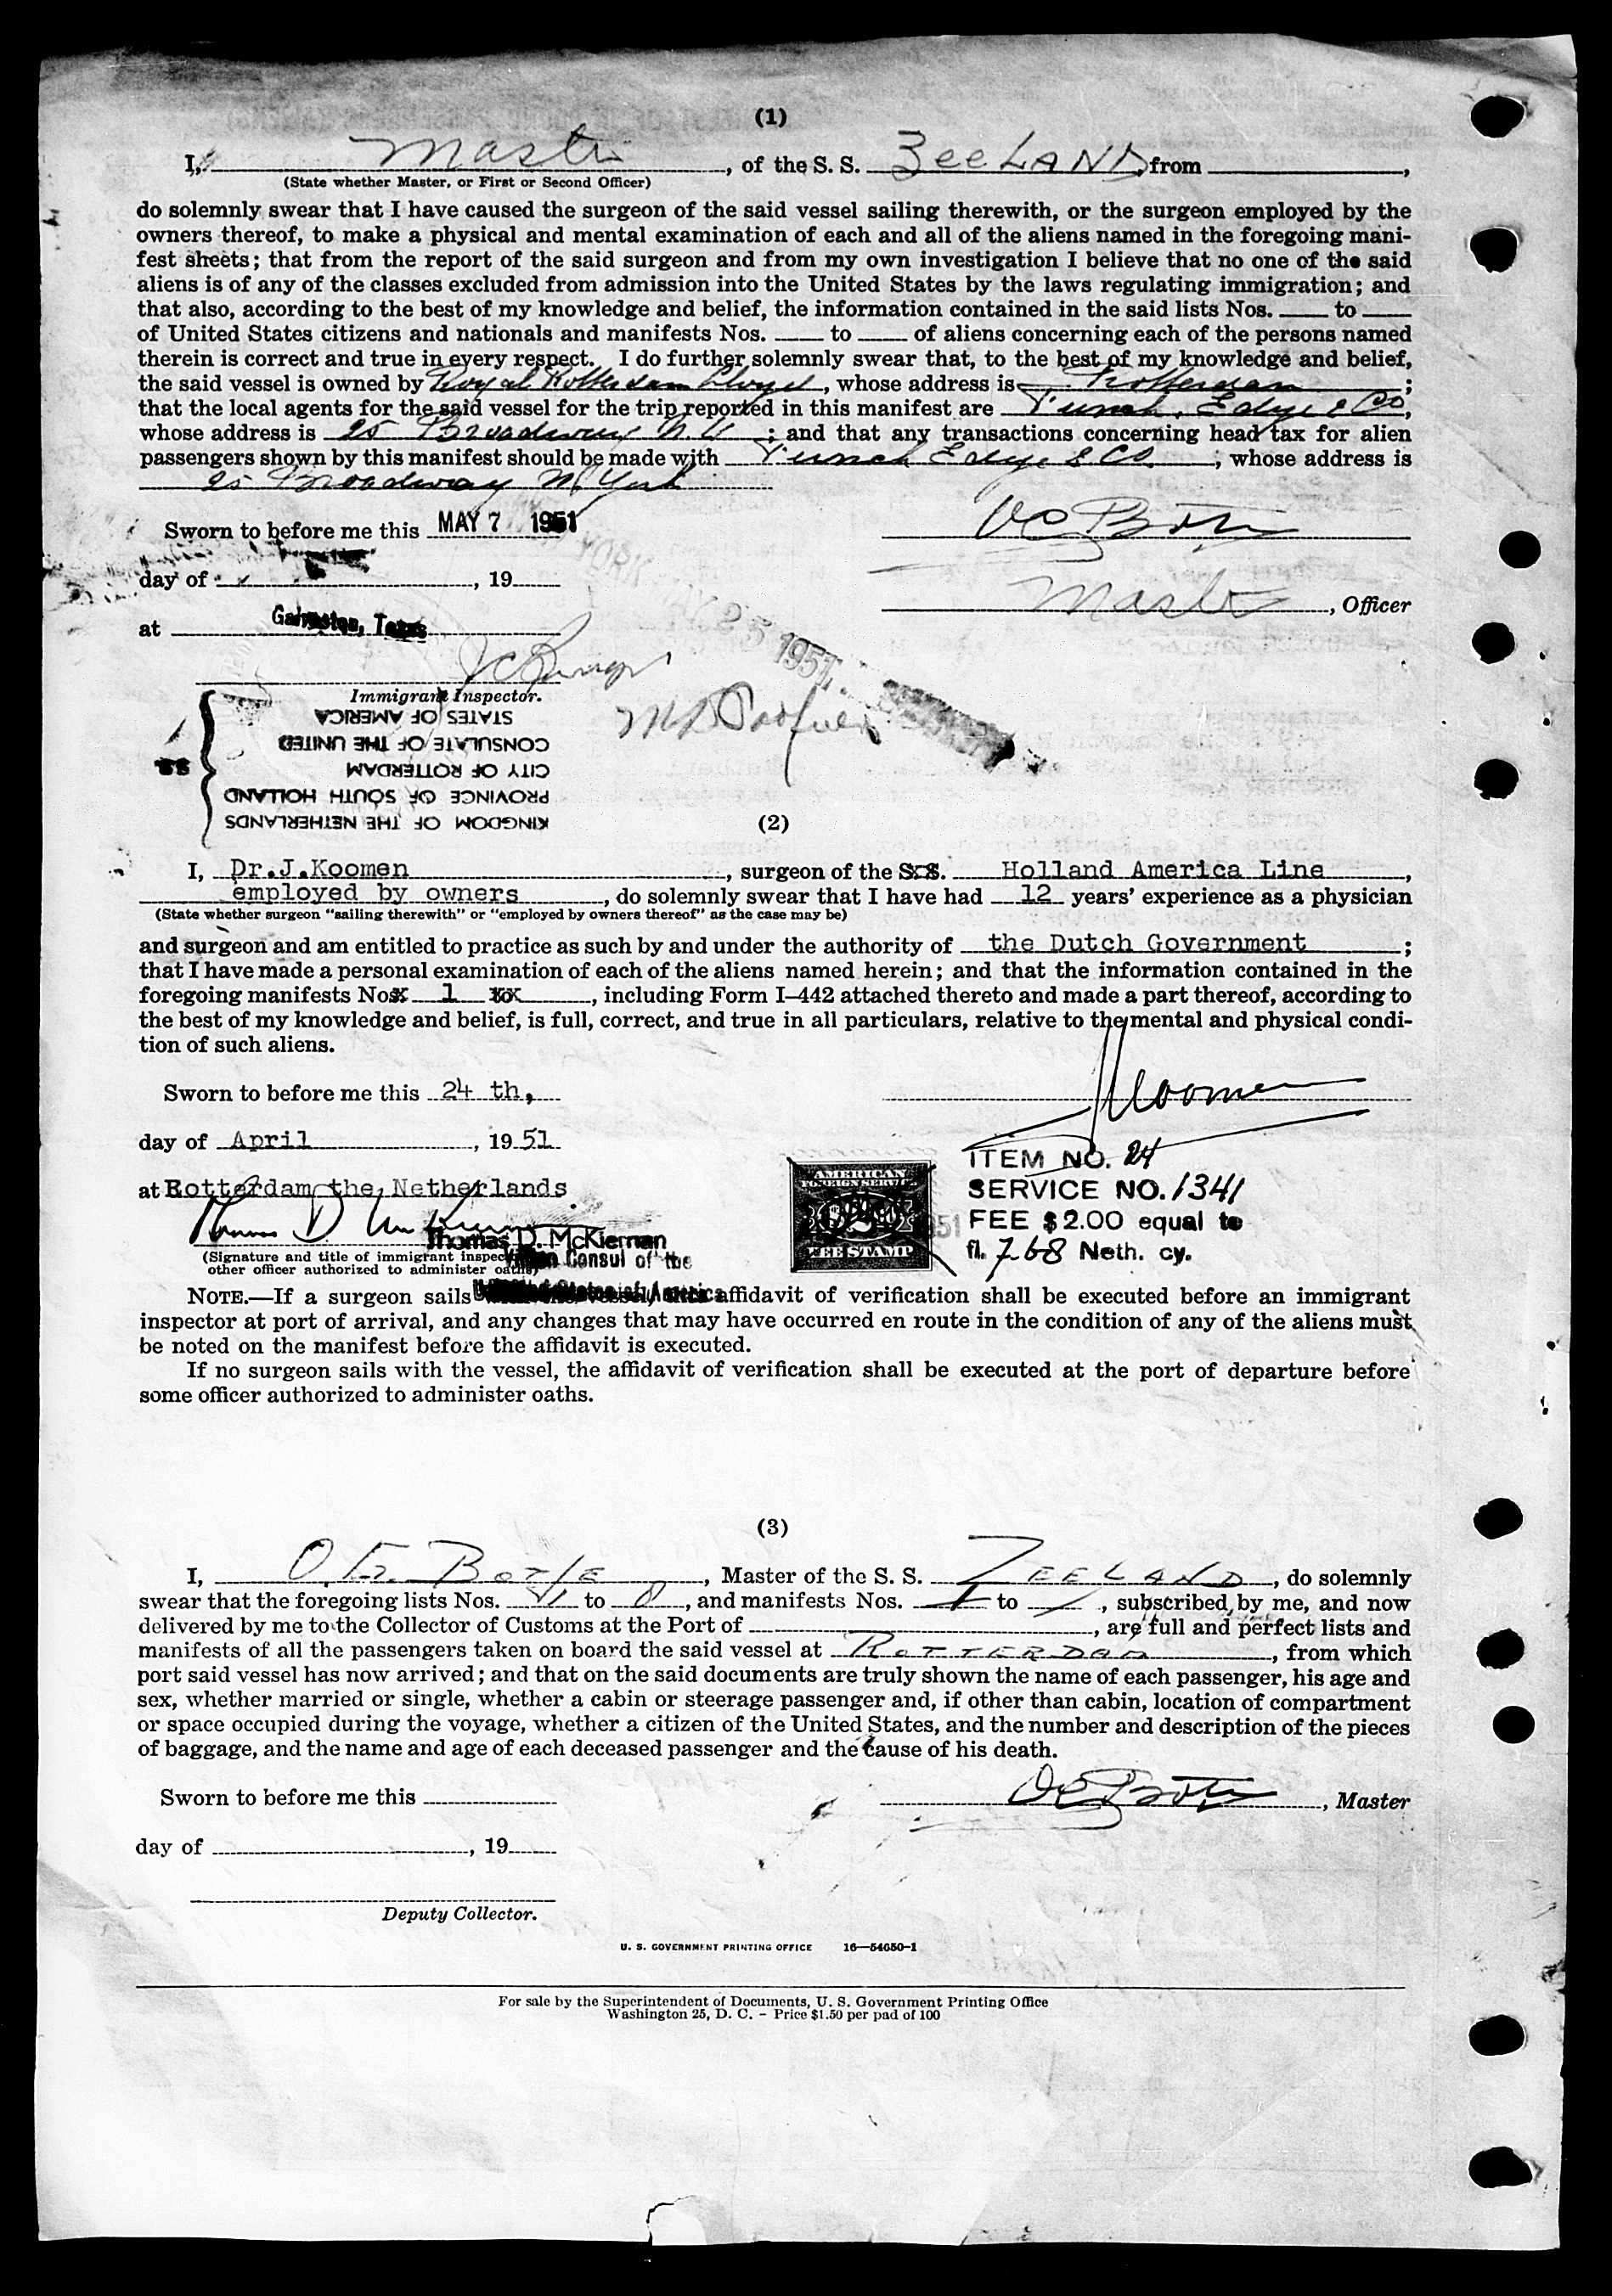 (1)
I, Master, of the S. S. ZeeLAND, from
(State whether Master, or First or Second Officer)
do solemnly swear that I have caused the surgeon of the said vessel sailing therewith, or the surgeon employed by the
owners thereof, to make a physical and mental examination of each and all of the aliens named in the foregoing mani-
fest sheets; that from the report of the said surgeon and from my own investigation I believe that no one of the said
aliens is of any of the classes excluded from admission into the United States by the laws regulating immigration; and
that also, according to the best of my knowledge and belief, the information contained in the said lists Nos. ____ to ____
of United States citizens and nationals and manifests Nos. ____ to ____ of aliens concerning each of the persons named
therein is correct and true in every respect. I do further solemnly swear that, to the best of my knowledge and belief,
the said vessel is owned by Royal Rotterdam Lloyd, whose address is Rotterdam;
that the local agents for the said vessel for the trip reported in this manifest are Funch, Edye & Co,
whose address is 25 Broadway N.Y; and that any transactions concerning head tax for alien
passengers shown by this manifest should be made with Funch Edye & Co., whose address is
25 Broadway N. York
Sworn to before me this MAY 7 1951
day of , 19
Master, Officer
at Galveston, Texas
25 1951
Immigrant Inspector.
STATES OF AMERICA
CONSULATE OF THE UNITED
CITY OF ROTTERDAM
PROVINCE OF SOUTH HOLLAND
KINGDOM OF THE NETHERLANDS
SS.
(2)
I, Dr.J.Koomen, surgeon of the S.S. Holland America Line,
employed by owners, do solemnly swear that I have had 12 years' experience as a physician
(State whether surgeon "sailing therewith" or "employed by owners thereof" as the case may be)
and surgeon and am entitled to practice as such by and under the authority of the Dutch Government;
that I have made a personal examination of each of the aliens named herein; and that the information contained in the
foregoing manifests Nosx 1 xx, including Form I–442 attached thereto and made a part thereof, according to
the best of my knowledge and belief, is full, correct, and true in all particulars, relative to the mental and physical condi-
tion of such aliens.
Sworn to before me this 24 th,
JKoomen
day of April, 19 51
at Rotterdam the Netherlands
AMERICAN
FOREIGN SERVICE
FEE STAMP
ITEM NO. 24
SERVICE NO. 1341
FEE $2.00 equal to
fl. 7.68 Neth. cy.
Thomas D. McKiernan
Consul of the
United States of America
(Signature and title of immigrant inspector or
other officer authorized to administer oaths)
NOTE.—If a surgeon sails with the vessel, this affidavit of verification shall be executed before an immigrant
inspector at port of arrival, and any changes that may have occurred en route in the condition of any of the aliens must
be noted on the manifest before the affidavit is executed.
If no surgeon sails with the vessel, the affidavit of verification shall be executed at the port of departure before
some officer authorized to administer oaths.
(3)
I, BOTJE, Master of the S. S. ZEELAND, do solemnly
swear that the foregoing lists Nos. to , and manifests Nos. 1 to 1, subscribed by me, and now
delivered by me to the Collector of Customs at the Port of , are full and perfect lists and
manifests of all the passengers taken on board the said vessel at ROTTERDAM, from which
port said vessel has now arrived; and that on the said documents are truly shown the name of each passenger, his age and
sex, whether married or single, whether a cabin or steerage passenger and, if other than cabin, location of compartment
or space occupied during the voyage, whether a citizen of the United States, and the number and description of the pieces
of baggage, and the name and age of each deceased passenger and the cause of his death.
Sworn to before me this
, Master
day of , 19
Deputy Collector.
U. S. GOVERNMENT PRINTING OFFICE 16—54050-1
For sale by the Superintendent of Documents, U. S. Government Printing Office
Washington 25, D. C. - Price $1.50 per pad of 100